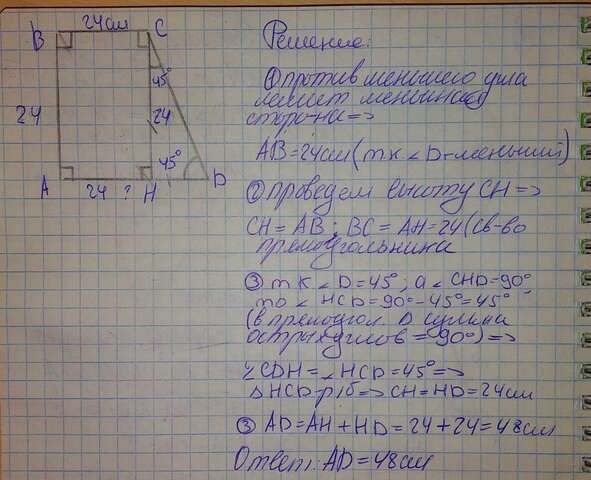 24см
B C
45°
24 24
45°
A 24 ? H D
Решение:
① против меньшего угла
лежит меньшая
сторона =>
AB = 24см (т.к. ∠D-меньший)
② проведем высоту CH =>
CH = AB ; BC = AH = 24 (св-во
прямоугольника
③ т.к ∠D = 45° ; а ∠CHD = 90°
то ∠HCD = 90° - 45° = 45°
(в прямоугол. Δ сумма
острых углов = 90°) =>
∠CDH = ∠HCD = 45° =>
ΔHCD-р/б => CH = HD = 24см
③ AD = AH + HD = 24 + 24 = 48см
Ответ: AD = 48см